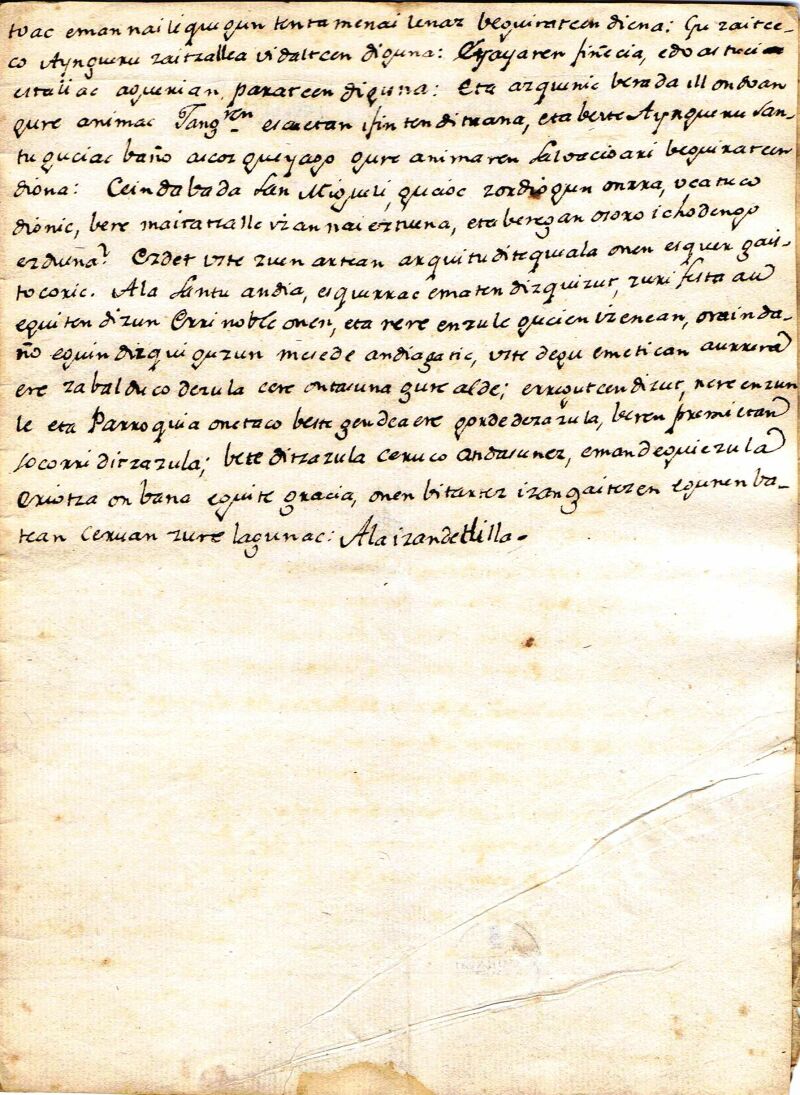 toac eman nai liquegun tentamenai lenaz beguiratcen diena: Gu zaitce-
co Ayngueru zaitzallea vidaltcen diguna: Etsayaren finecia, edo astucia
estaliac aguerian paratcen diguna: Eta azquenic bera da ill ondoan
gure animac Jang.ren escuetan ifinten dituana, eta beste Aynqueru San-
tu guciac baño ascoz gueyago gure animaren Salvacioari beguiratcen
diona: Ceindabada San Migueli, gucioc zordiogun onrra, vcatuco
dionic, bere maitatzalle vzan nai eztuena, eta beregan osoro ichodengo
ezduena? Ezdet vste zuen artean arquituditequeala onen esquer gais-
tocoric. Ala Santu andia, esquerrac ematen dizquizut, zuri festa au
eguiten dizun Erri noble onen, eta nere enzule gucien vzenean, orainda-
ño eguin dizquiguzun mesede andiagatic, vste degu emetican aurrera
ere zabalduco dezula cere ontasuna gure alde; erregutcen dizut, nere enzu-
le eta Parroquia onetaco beste gendea ere gorde dezazula, beren premietan
socorri ditzazula; bete ditzazula ceruco ondasunez, eman deguiezula
Eriotza on bana eguite gracia, onen bitartez izan gaitezen egunen ba-
tean Ceruan zure lagunac: Ala izan dedilla.